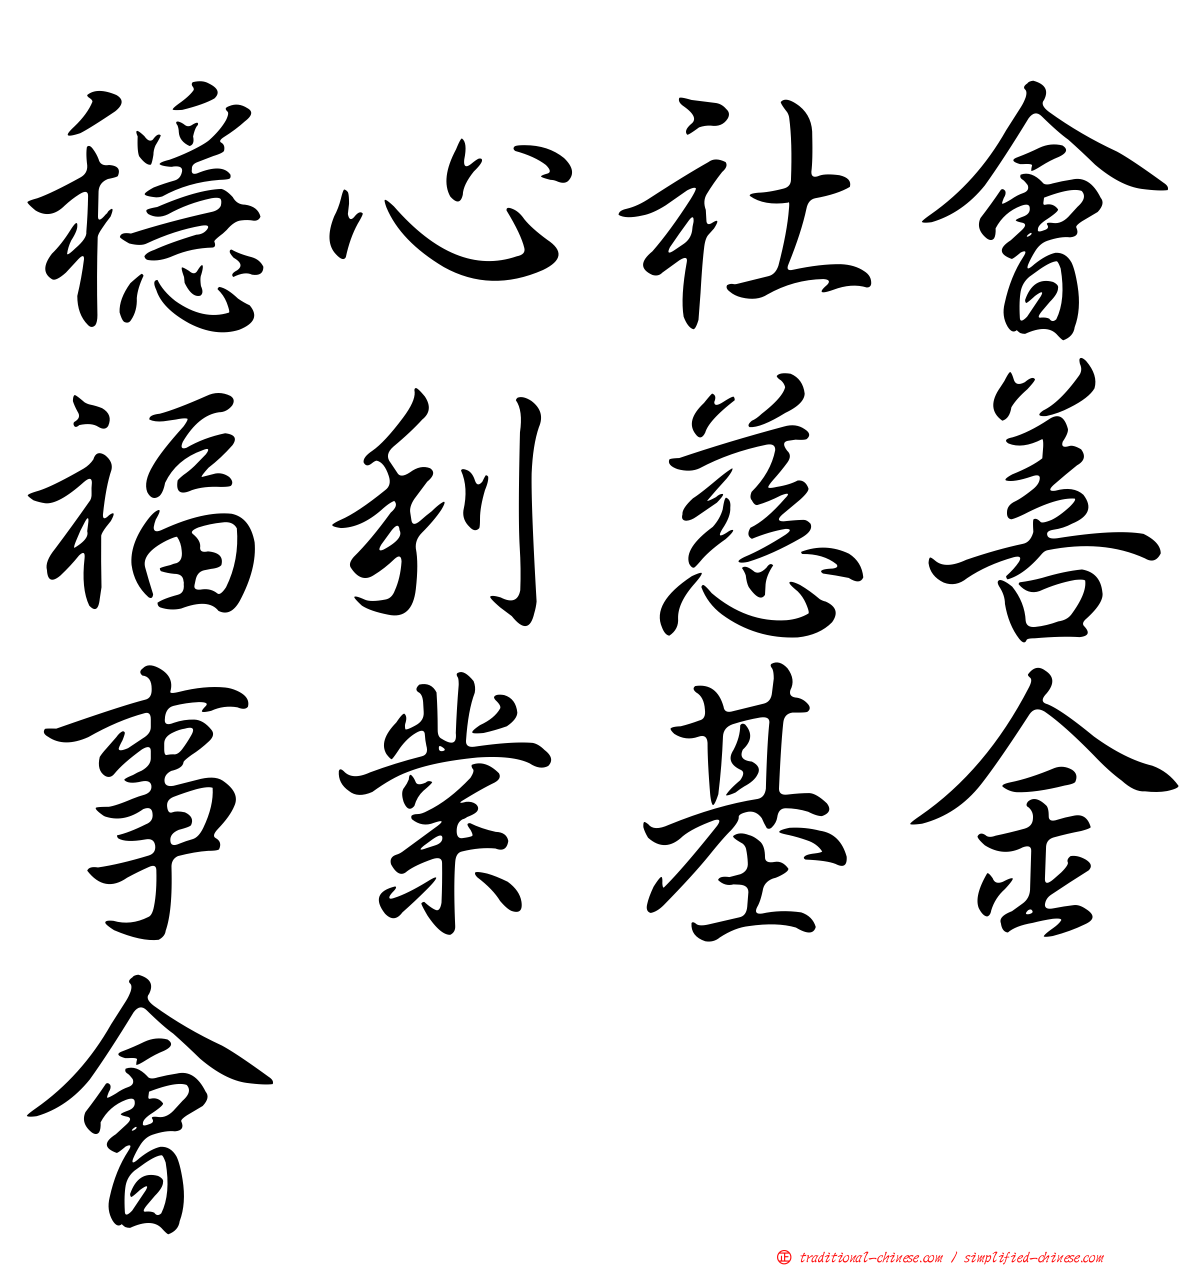 穩心社會
福利慈善
事業基金
會
正 traditional-chinese.com / simplified-chinese.com